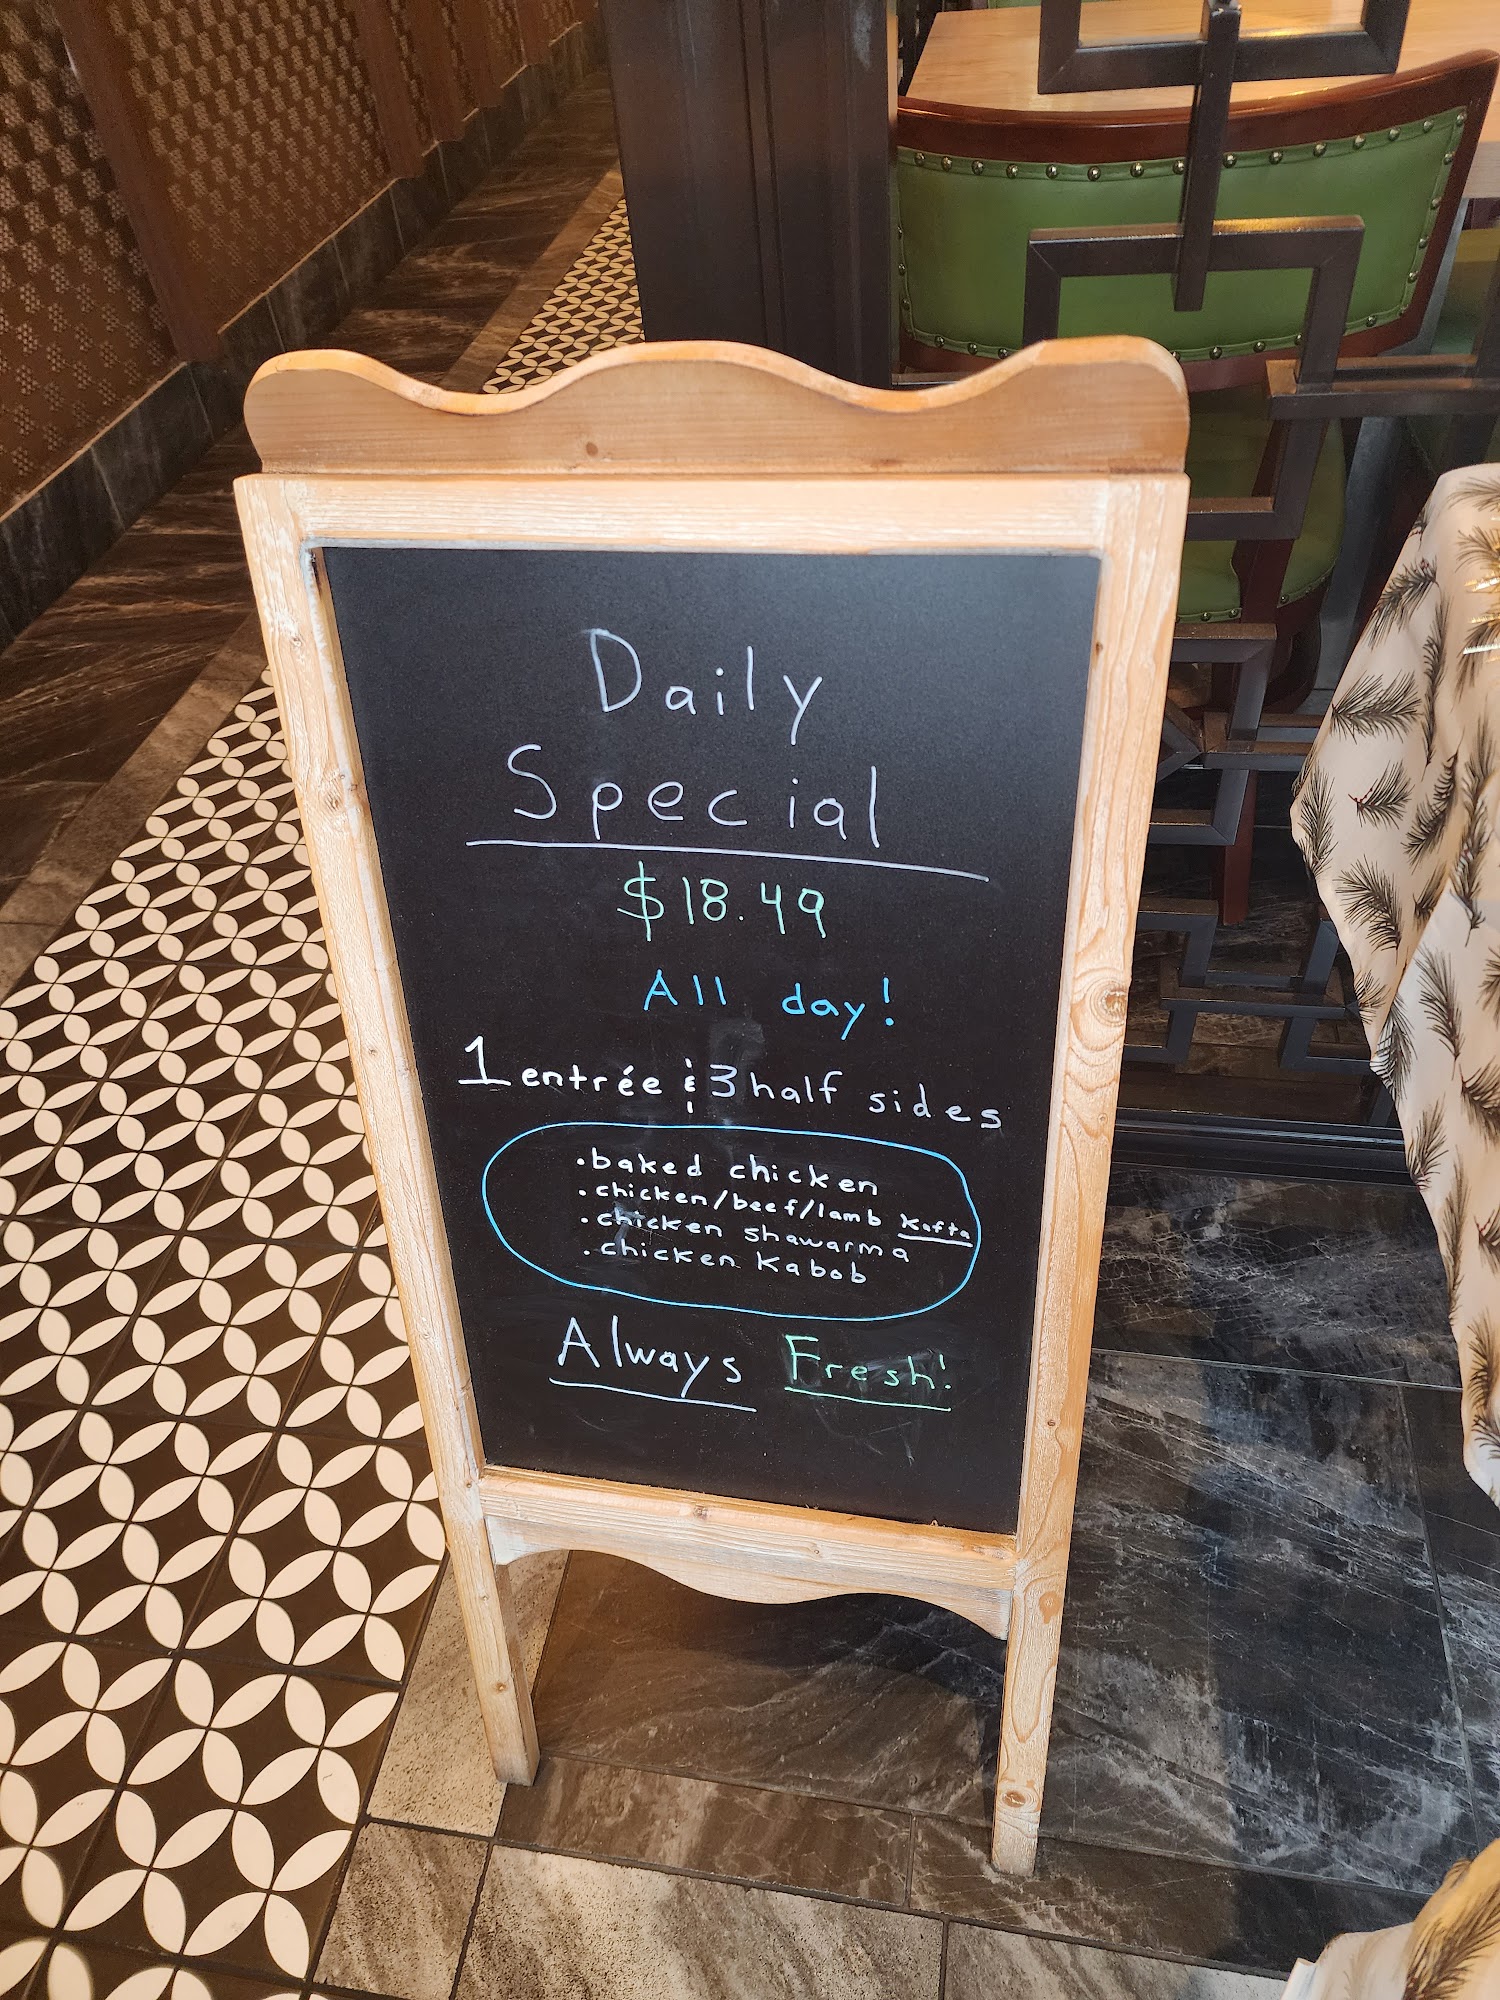 Daily
Special
$18.49
All day!
1 entrée & 3 half sides
• baked chicken
• chicken/beef/lamb Kafta
• chicken shawarma
• chicken Kabob
Always Fresh!